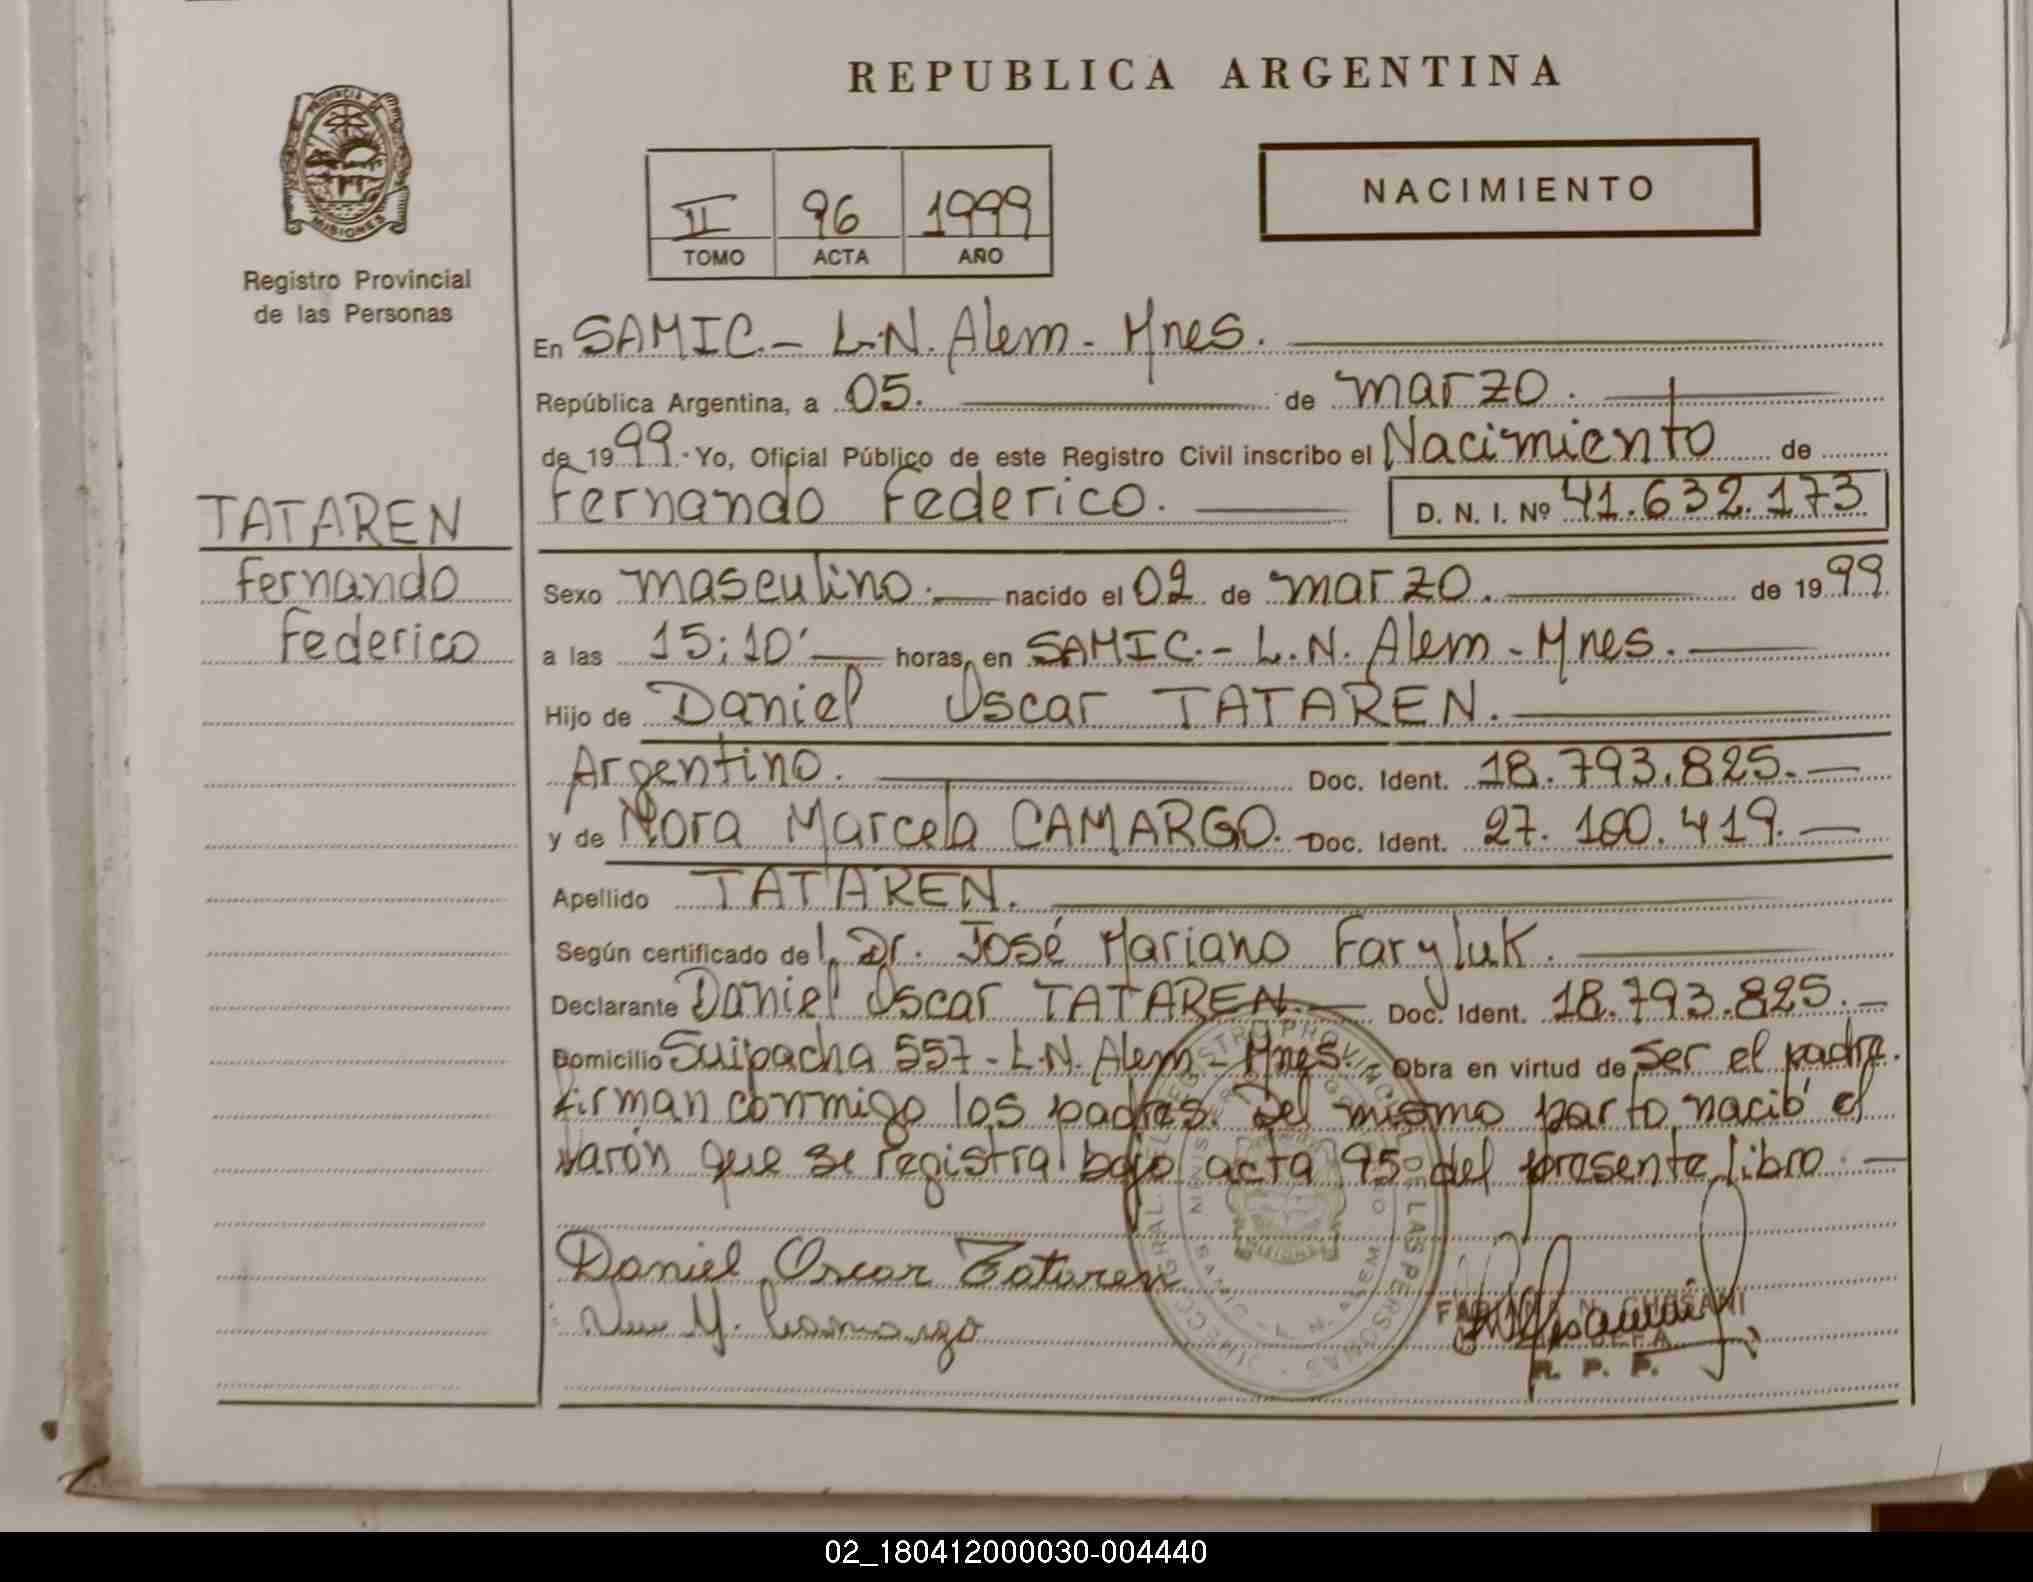 REPUBLICA ARGENTINA
PROVINCIA DE
MISIONES
Registro Provincial
de las Personas
II 96 1999
TOMO ACTA AÑO
NACIMIENTO
En SAMIC.- L.N. Alem - Mnes.
República Argentina, a 05. de marzo.
de 1999. Yo, Oficial Público de este Registro Civil inscribo el Nacimiento de
Fernando Federico. D. N. I. Nº 41.632.173
TATAREN
Fernando
Federico
Sexo masculino.- nacido el 02 de marzo. de 1999.
a las 15:10' horas, en SAMIC.- L.N. Alem - Mnes.
Hijo de Daniel Oscar TATAREN.
Argentino. Doc. Ident. 18.793.825.-
y de Nora Marcela CAMARGO.- Doc. Ident. 27.100.419.-
Apellido TATAREN.
Según certificado de l Dr. José Mariano Faryluk.
Declarante Daniel Oscar TATAREN.- Doc. Ident. 18.793.825.-
Domicilio Suipacha 557 - L.N. Alem - Mnes. Obra en virtud de ser el padre.
Firman conmigo los padres. Del mismo parto nació el
varón que se registra bajo acta 95 del presente libro.-
Daniel Oscar Tataren
M. Camargo
DE LAS PERSONAS
R. P. P.
02_180412000030-004440